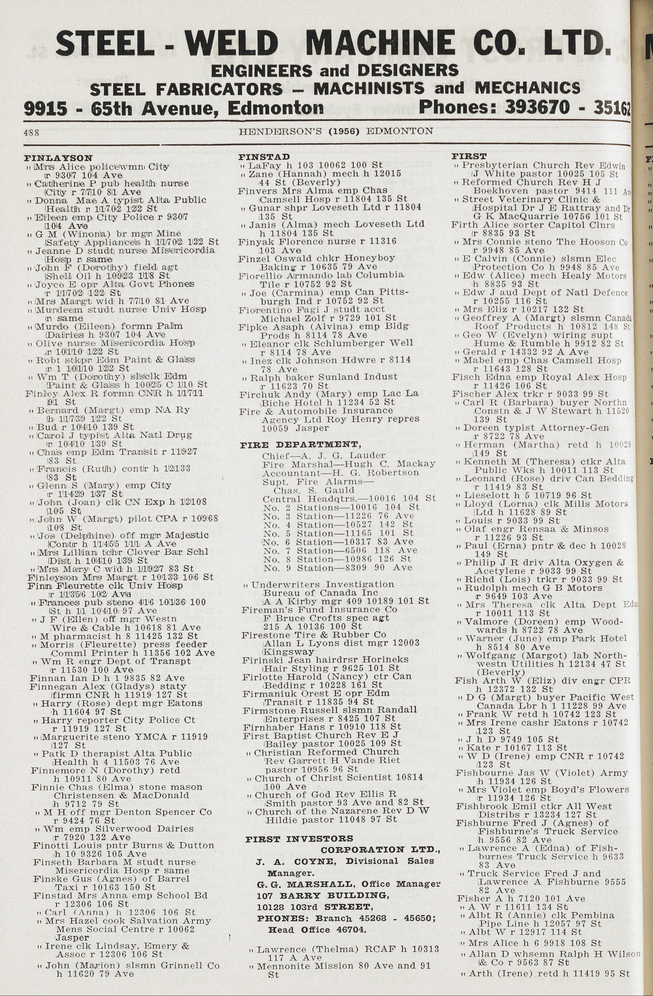 STEEL - WELD MACHINE CO. LTD.
ENGINEERS and DESIGNERS
STEEL FABRICATORS — MACHINISTS and MECHANICS
9915 - 65th Avenue, Edmonton Phones: 393670 - 35162
488 HENDERSON'S (1956) EDMONTON
FINLAYSON
" Mrs Alice policewmn City
r 9307 104 Ave
" Catherine P pub health nurse
City r 7710 81 Ave
" Donna Mae A typist Alta Public
Health r 11702 122 St
" Eileen emp City Police r 9307
104 Ave
" G M (Winona) br mgr Mine
Safety Appliances h 11702 122 St
" Jeanne D studt nurse Misericordia
Hosp r same
" John F (Dorothy) field agt
Shell Oil h 10923 118 St
" Joyce E opr Alta Govt Phones
r 11702 122 St
" Mrs Margt wid h 7710 81 Ave
" Murdeem studt nurse Univ Hosp
rn same
" Murdo (Eileen) formn Palm
Dairies h 9307 104 Ave
" Olive nurse Misericordia Hosp
r 10110 122 St
" Robt stkpr Edm Paint & Glass
r 1 10110 122 St
" Wm T (Dorothy) slsclk Edm
Paint & Glass h 10025 C 110 St
Finley Alex R formn CNR h 11711
91 St
" Bernard (Margt) emp NA Ry
h 11739 122 St
" Bud r 10410 139 St
" Carol J typist Alta Natl Drug
r 10410 139 St
" Chas emp Edm Transit r 11927
83 St
" Francis (Ruth) contr h 12133
83 St
" Glenn S (Mary) emp City
r 11429 137 St
" John (Joan) clk CN Exp h 12108
105 St
" John W (Margt) pilot CPA r 10968
108 St
" Jos (Delphine) off mgr Majestic
Contr h 11455 111 A Ave
" Mrs Lillian tchr Clover Bar Schl
Dist h 10410 139 St
" Mrs Mary C wid h 11927 83 St
Finleyson Mrs Margt r 10133 106 St
Finn Fleurette clk Univ Hosp
r 11356 102 Ave
" Frances pub steno 416 10136 100
St h 11 10410 97 Ave
" J F (Ellen) off mgr Westn
Wire & Cable h 10618 81 Ave
" M pharmacist h 8 11425 132 St
" Morris (Fleurette) press feeder
Comml Printer h 11356 102 Ave
" Wm R engr Dept of Transpt
r 11530 100 Ave
Finnan Ian D h 1 9835 82 Ave
Finnegan Alex (Gladys) staty
firmn CNR h 11919 127 St
" Harry (Rose) dept mgr Eatons
h 11604 97 St
" Harry reporter City Police Ct
r 11919 127 St
" Marguerite steno YMCA r 11919
127 St
" Patk D therapist Alta Public
Health h 4 11503 76 Ave
Finnemore N (Dorothy) retd
h 10911 80 Ave
Finnie Chas (Elma) stone mason
Christensen & MacDonald
h 9712 79 St
" M H off mgr Denton Spencer Co
r 9424 76 St
" Wm emp Silverwood Dairies
r 7920 132 Ave
Finotti Louis pntr Burns & Dutton
h 10 9326 105 Ave
Finseth Barbara M studt nurse
Misericordia Hosp r same
Finske Gus (Agnes) of Barrel
Taxi r 10163 150 St
Finstad Mrs Anna emp School Bd
r 12306 106 St
" Carl (Anna) h 12306 106 St
" Mrs Hazel cook Salvation Army
Mens Social Centre r 10062
Jasper
" Irene clk Lindsay, Emery &
Assoc r 12306 106 St
" John (Marion) slsmn Grinnell Co
h 11620 79 Ave
FINSTAD
" LaFay h 103 10062 100 St
" Zane (Hannah) mech h 12015
44 St (Beverly)
Finvers Mrs Alma emp Chas
Camsell Hosp r 11804 135 St
" Gunar shpr Loveseth Ltd r 11804
135 St
" Janis (Alma) mech Loveseth Ltd
h 11804 135 St
Finyak Florence nurse r 11316
103 Ave
Finzel Oswald chkr Honeyboy
Baking r 10635 79 Ave
Fiorellio Armando lab Columbia
Tile r 10752 92 St
" Joe (Carmn) emp Can Pitts-
burgh Ind r 10752 92 St
Fiorentino Fagi J studt acct
Michael Zolf r 9729 101 St
Fipke Asaph (Alvina) emp Bldg
Prods h 8114 78 Ave
" Eleanor clk Schlumberger Well
r 8114 78 Ave
" Inez clk Johnson Hdwre r 8114
78 Ave
" Ralph baker Sunland Indust
r 11623 70 St
Firchuk Andy (Mary) emp Lac La
Biche Hotel h 11234 52 St
Fire & Automobile Insurance
Agency Ltd Roy Henry repres
10059 Jasper
FIRE DEPARTMENT,
Chief—A. J. G. Lauder
Fire Marshal—Hugh C. Mackay
Accountant—H. G. Robertson
Supt. Fire Alarms—
Chas. S. Gauld
Central Headqtrs.—10016 104 St
No. 2 Stations—10016 104 St
No. 3 Station—11226 76 Ave
No. 4 Station—10527 142 St
No. 5 Station—11165 101 St
No. 6 Station—10317 83 Ave
No. 7 Station—6506 118 Ave
No. 8 Station—10986 126 St
No. 9 Station—8309 90 Ave
" Underwriters Investigation
Bureau of Canada Inc
A A Kirby mgr 409 10189 101 St
Fireman's Fund Insurance Co
F Bruce Crofts spec agt
215 A 10136 100 St
Firestone Tire & Rubber Co
Allan L Lyons dist mgr 12003
Kingsway
Firinski Jean hairdrsr Horineks
Hair Styling r 9625 101 St
Firlotte Harold (Nancy) ctr Can
Bedding r 10228 161 St
Firmaniuk Orest E opr Edm
Transit r 11835 94 St
Firmstone Russell slsmn Randall
Enterprises r 8425 107 St
Firnhaber Hans r 10910 118 St
First Baptist Church Rev E J
Bailey pastor 10025 109 St
" Christian Reformed Church
Rev Garrett H Vande Riet
pastor 10956 96 St
" Church of Christ Scientist 10814
100 Ave
" Church of God Rev Ellis R
Smith pastor 93 Ave and 82 St
" Church of the Nazarene Rev D W
Hildie pastor 11048 97 St
FIRST INVESTORS
CORPORATION LTD.,
J. A. COYNE, Divisional Sales
Manager.
G. G. MARSHALL, Office Manager
107 BARRY BUILDING,
10128 103rd STREET,
PHONES: Branch 45268 - 45650;
Head Office 46704.
" Lawrence (Thelma) RCAF h 10313
117 A Ave
" Mennonite Mission 80 Ave and 91
St
FIRST
" Presbyterian Church Rev Edwin
J White pastor 10025 105 St
" Reformed Church Rev H J
Boekhoven pastor 9414 111 Av
" Street Veterinary Clinic &
Hospital Dr J E Rattray and Dr
G K MacQuarrie 10756 101 St
Firth Alice sorter Capitol Clnrs
r 8835 93 St
" Mrs Connie steno The Hooson Co
r 9948 85 Ave
" E Calvin (Connie) slsmn Elec
Protection Co h 9948 85 Ave
" Edw (Alice) mech Healy Motors
h 8835 93 St
" Edw J aud Dept of Natl Defence
r 10255 116 St
" Mrs Eliz r 10217 132 St
" Geoffrey A (Margt) slsmn Canada
Roof Products h 10812 148 St
" Geo W (Evelyn) wiring supt
Hume & Rumble h 9912 82 St
" Gerald r 14332 92 A Ave
" Mabel emp Chas Camsell Hosp
r 11643 128 St
Fisch Edna emp Royal Alex Hosp
r 11426 106 St
Fischer Alex trkr r 9033 99 St
" Carl R (Barbara) buyer Northn
Constn & J W Stewart h 11520
139 St
" Doreen typist Attorney-Gen
r 8722 78 Ave
" Herman (Martha) retd h 10028
149 St
" Kenneth M (Theresa) ctkr Alta
Public Wks h 10011 113 St
" Leonard (Rose) driv Can Bedding
r 11419 83 St
" Lieselott h 5 10719 96 St
" Lloyd (Lorna) clk Mills Motors
Ltd h 11628 89 St
" Louis r 9033 99 St
" Olaf engr Rensaa & Minsos
r 11226 93 St
" Paul (Erna) pntr & dec h 10028
149 St
" Philip J R driv Alta Oxygen &
Acetylene r 9033 99 St
" Richd (Lois) trkr r 9033 99 St
" Rudolph mech G B Motors
r 9649 103 Ave
" Mrs Theresa clk Alta Dept Edu
r 10011 113 St
" Valmore (Doreen) emp Wood-
wards h 8722 78 Ave
" Warner (June) emp Park Hotel
h 8514 80 Ave
" Wolfgang (Margot) lab North-
westn Utilities h 12134 47 St
(Beverly)
Fish Arth W (Eliz) div engr CPR
h 12372 132 St
" D G (Margt) buyer Pacific West
Canada Lbr h 1 11228 99 Ave
" Frank W retd h 10742 123 St
" Mrs Irene cashr Eatons r 10742
123 St
" J h D 9749 105 St
" Kate r 10167 113 St
" W D (Irene) emp CNR r 10742
123 St
Fishbourne Jas W (Violet) Army
h 11934 126 St
" Mrs Violet emp Boyd's Flowers
r 11934 126 St
Fishbrook Emil ctkr All West
Distribs r 13234 127 St
Fishburne Fred J (Agnes) of
Fishburne's Truck Service
h 9556 82 Ave
" Lawrence A (Edna) of Fish-
burnes Truck Service h 9633
83 Ave
" Truck Service Fred J and
Lawrence A Fishburne 9555
82 Ave
Fisher A h 7120 101 Ave
" A W r 11611 134 St
" Albt R (Annie) clk Pembina
Pipe Line h 12057 97 St
" Albt W r 12917 114 St
" Mrs Alice h 6 9918 108 St
" Allan D whsemn Ralph H Wilson
& Co r 9563 87 St
" Arth (Irene) retd h 11419 95 St